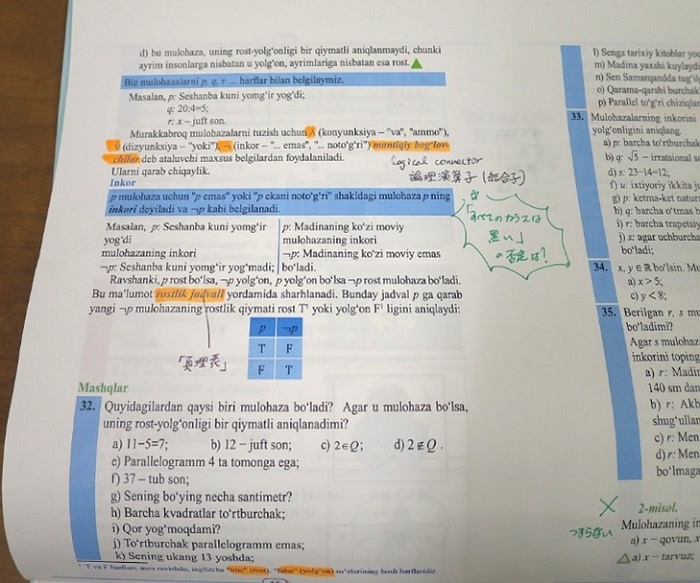 d) bu mulohaza, uning rost-yolg‘onligi bir qiymatli aniqlanmaydi, chunki
ayrim insonlarga nisbatan u yolg‘on, ayrimlariga nisbatan esa rost.
Biz mulohazalarni p, q, r ... harflar bilan belgilaymiz.
Masalan, p: Seshanba kuni yomg‘ir yog‘di;
q: 20:4=5;
r: x – juft son.
Murakkabroq mulohazalarni tuzish uchun ∧ (konyunksiya – "va", "ammo"),
∨ (dizyunksiya – "yoki"), ¬ (inkor – "... emas", "... noto‘g‘ri") mantiqiy bog‘lov-
chilar deb ataluvchi maxsus belgilardan foydalaniladi.
Ularni qarab chiqaylik.
logical connector
論理演算子 (結合子)
Inkor
p mulohaza uchun "p emas" yoki "p ekani noto‘g‘ri" shakldagi mulohaza p ning
inkori deyiladi va ¬p kabi belgilanadi.
☆
「すべてのカラスは
黒い」
の否定は?
Masalan, p: Seshanba kuni yomg‘ir
yog‘di
mulohazaning inkori
¬p: Seshanba kuni yomg‘ir yog‘madi;
p: Madinaning ko‘zi moviy
mulohazaning inkori
¬p: Madinaning ko‘zi moviy emas
bo‘ladi.
Ravshanki, p rost bo‘lsa, ¬p yolg‘on, p yolg‘on bo‘lsa ¬p rost mulohaza bo‘ladi.
Bu ma’lumot rostlik jadvali yordamida sharhlanadi. Bunday jadval p ga qarab
yangi ¬p mulohazaning rostlik qiymati rost T¹ yoki yolg‘on F¹ ligini aniqlaydi:
「真理表」
p ¬p
T F
F T
Mashqlar
32. Quyidagilardan qaysi biri mulohaza bo‘ladi? Agar u mulohaza bo‘lsa,
uning rost-yolg‘onligi bir qiymatli aniqlanadimi?
a) 11–5=7; b) 12 – juft son; c) 2∈Q; d) 2∉Q .
e) Parallelogramm 4 ta tomonga ega;
f) 37 – tub son;
g) Sening bo‘ying necha santimetr?
h) Barcha kvadratlar to‘rtburchak;
i) Qor yog‘moqdami?
j) To‘rtburchak parallelogramm emas;
k) Sening ukang 13 yoshda;
¹ T va F harflari, mos ravishda, inglizcha "true" (rost), "false" (yolg‘on) so‘zlarining bosh harflaridir.
l) Senga tarixiy kitoblar
m) Madina yaxshi kuylaydi
n) Sen Samarqandda
o) Qarama-qarshi burchak
p) Parallel to‘g‘ri chiziqlar
33. Mulohazalarning inkorini
yolg‘onligini aniqlang.
a) p: barcha to‘rtburchak
b) q: √5 – irratsional
d) s: 23–14=12;
f) u: ixtiyoriy ikkita
g) p: ketma-ket naturi
h) q: barcha o‘tmas b
i) r: barcha trapetsiy
j) s: agar uchburcha
bo‘ladi;
34. x, y ∈ R bo‘lsin. Mu
a) x > 5;
c) y < 8;
35. Berilgan r, s mu
bo‘ladimi?
Agar s mulohaz
inkorini toping
a) r: Madin
140 sm dan
b) r: Akb
shug‘ullan
c) r: Men
d) r: Men
bo‘lmaga
つまらない
2-misol.
Mulohazaning in
a) x – qovun, x
a) x – tarvuz